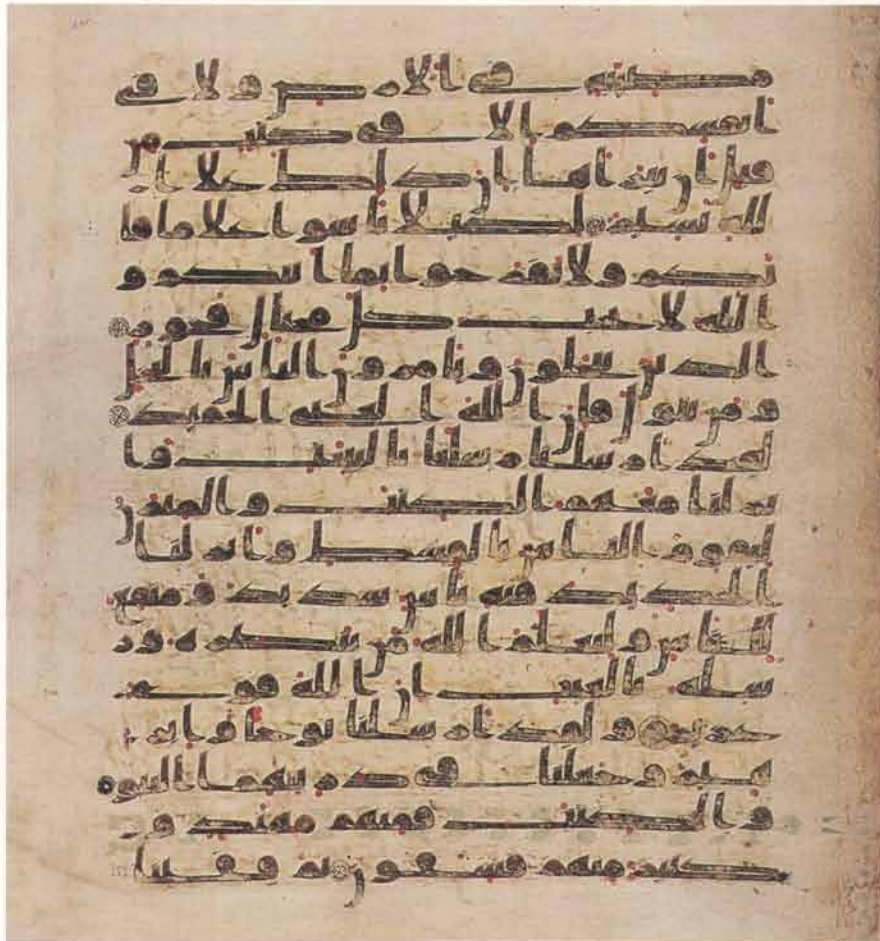 مصيبة في الارض ولا في
انفسكم الا في كتب من
قبل ان نبراها ان ذلك على ا
لله يسير لكيلا تاسوا على ما فا
تكم ولا تفرحوا بما اتيكم و
الله لا يحب كل مختال فخور
الذين يبخلون ويامرون الناس بالبخل
ومن يتول فان الله الغني الحميد
لقد ارسلنا رسلنا بالبينت وا
نزلنا معهم الكتب والميزن
ليقوم الناس بالقسط وانزلنا
الحديد فيه باس شديد ومنفع
للناس وليعلم الله من ينصره ور
سله بالغيب ان الله قوي
عزيز ولقد ارسلنا نوحا وابر
هيم وجعلنا في ذريتهما النبوة
والكتب فمنهم مهتد و
كثير منهم فسقون ثم قفينا